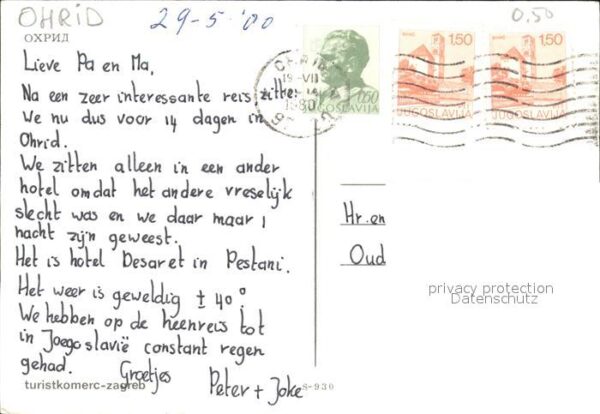 OHRID 29-5-'00 0.50
ОХРИД
Lieve Pa en Ma,
Na een zeer interessante reis zitten
We nu dus voor 14 dagen in
Ohrid.
We zitten alleen in een ander
hotel omdat het andere vreselijk
slecht was en we daar maar 1
nacht zijn geweest.
Het is hotel Desaret in Pestani.
Het weer is geweldig ± 40°.
We hebben op de heenreis tot
in Joegoslavië constant regen
gehad.
Groetjes
Peter + Joke
turistkomerc-zagreb S-930
OHRID
19-VII
1980
0,50
JUGOSLAVIJA
1,50
JUGOSLAVIJA
1,50
JUGOSLAVIJA
Hr. en
Oud
privacy protection
Datenschutz